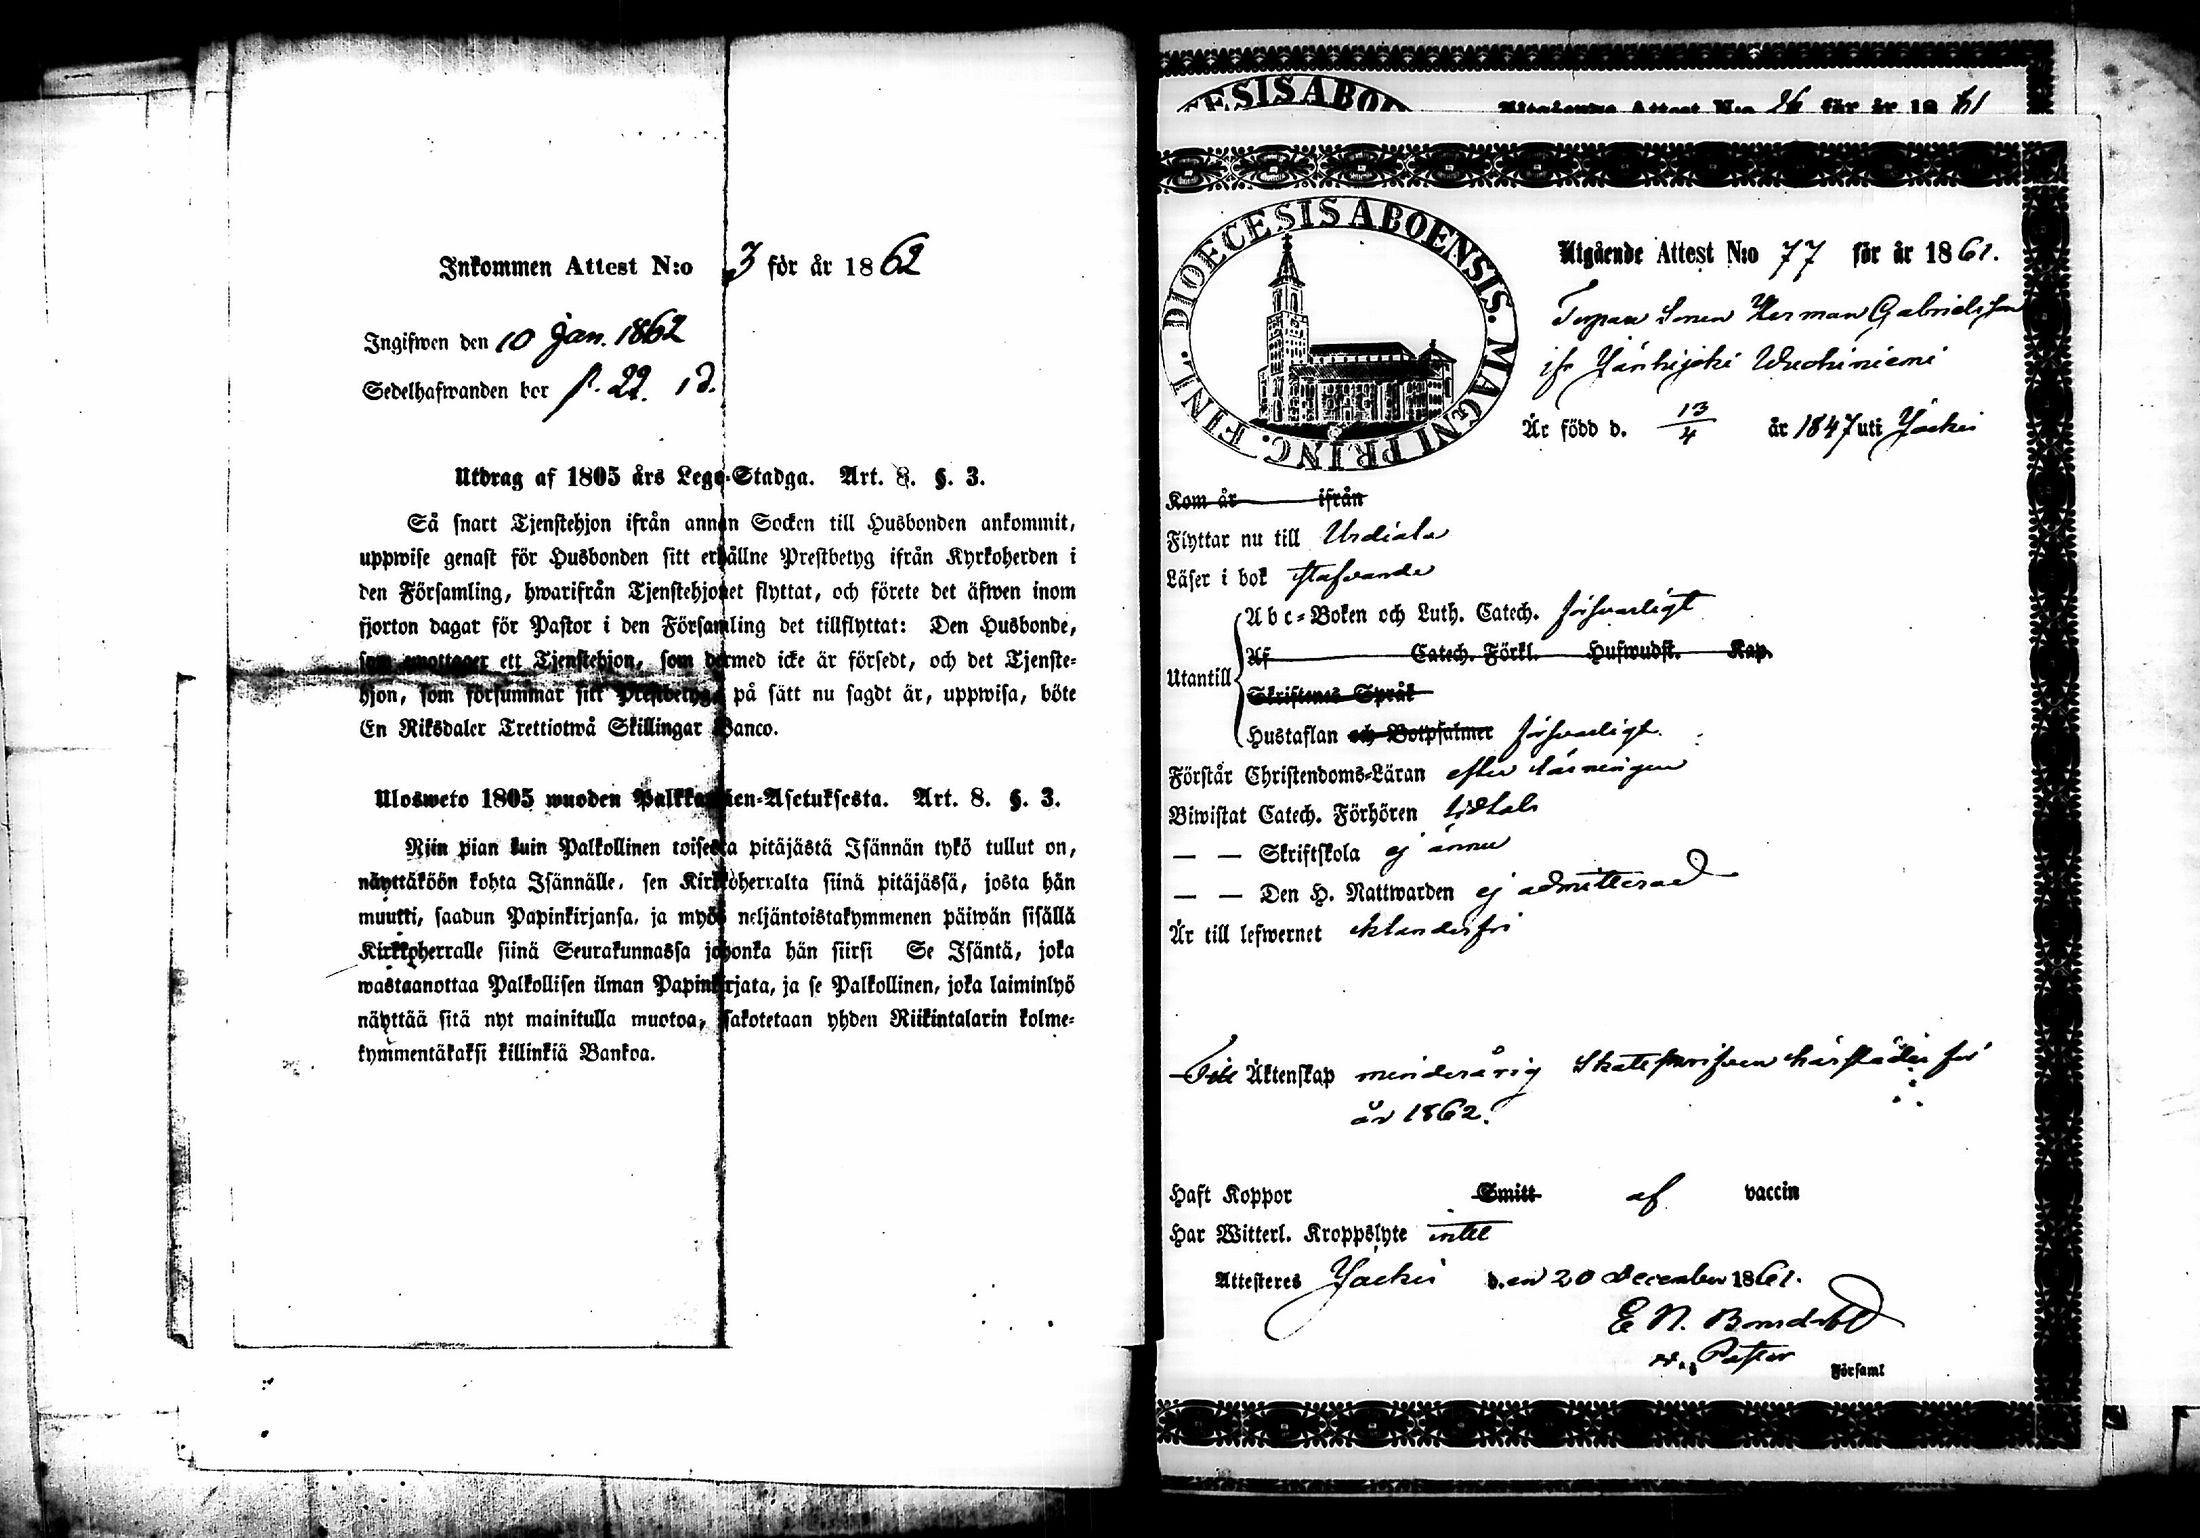 Inkommen Attest N:o 3 för år 1862
Ingifwen den 10 Jan. 1862
Sedelhafwanden bor p. 22. 1 d.
Utdrag af 1805 års Lego-Stadga. Art. 8. §. 3.
Så snart Tjenstehjon ifrån annan Socken till Husbonden ankommit,
uppwise genast för Husbonden sitt erhållne Prestbetyg ifrån Kyrkoherden i
den Församling, hwarifrån Tjenstehjonet flyttat, och förete det äfwen inom
fjorton dagar för Pastor i den Församling det tillflyttat: Den Husbonde,
som emottager ett Tjenstehjon, som dermed icke är försedt, och det Tjenste-
hjon, som försummar sitt Prestbetyg, på sätt nu sagdt är, uppwisa, böte
En Riksdaler Trettiotwå Skillingar Banco.
Ulosweto 1805 wuoden Palkkawäen-Asetuksesta. Art. 8. §. 3.
Niin pian kuin Palkollinen toisesta pitäjästä Isännän tykö tullut on,
näyttäköön kohta Isännälle, sen Kirkkoherralta siinä pitäjässä, josta hän
muutti, saadun Papinkirjansa, ja myös neljäntoistakymmenen päiwän sisällä
Kirkkoherralle siinä Seurakunnassa johonka hän siirsi Se Isäntä, joka
wastaanottaa Palkollisen ilman Papinkirjata, ja se Palkollinen, joka laiminlyö
näyttää sitä nyt mainitulla muotoa, sakotetaan yhden Riikintalarin kolme-
kymmentäkaksi killinkiä Bankoa.
DIOECESIS ABOE
Utgående Attest N:o 26 för år 1861
DIOECESIS ABOENSIS. MAGNI PRINC. FINL.
Utgående Attest N:o 77 för år 1861.
Sonen Herman Gabrielsson
ifr
Är född d. 13/4 år 1847 uti Jockis
Kom år ifrån
Flyttar nu till Urdiala
Läser i bok stafvande
Abc-Boken och Luth. Catech. försvarligt
Af Catech. Förkl. Hufwudst. Kap.
Utantill
Skriftenes Språk
Hustaflan och Botpsalmer försvarligt.
Förstår Christendoms-Läran efter
Biwistat Catech. Förhören
— — Skriftskola ej ännu
— — Den H. Nattwarden ej admitterad
Är till lefwernet klanderfri
Till Äktenskap minderårig Skattskrifven härstädes för
år 1862.
Haft Koppor Smitt af vaccin
Har Witterl. Kroppslyte intet
Attesteres Jockis d. en 20 December 1861.
E. N.
Pastor Församl